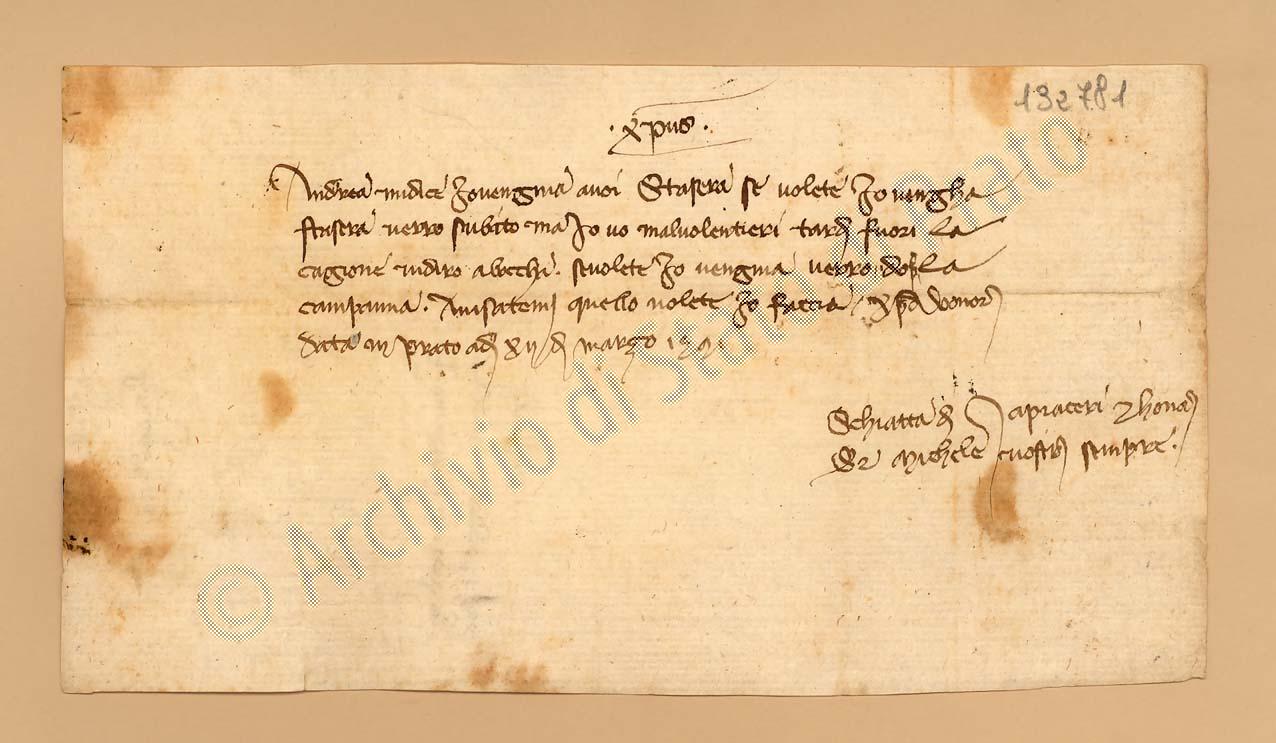 132781
· xpus ·
Andrea midice Jo vengnia a voi Stasera se volete Jo vengha
stasera verro subito ma Jo vo malvolentieri tardi fuori la
cagione vi diro a bocchi. se volete Jo vengnia verro dopo la
campanna. Avisatemj quello volete Jo faccia.
data in prato adj xij dj marzo
Schiatta dj apiaceri e honor
Ser Michele vostrj sempre.
© Archivio di Stato di Prato